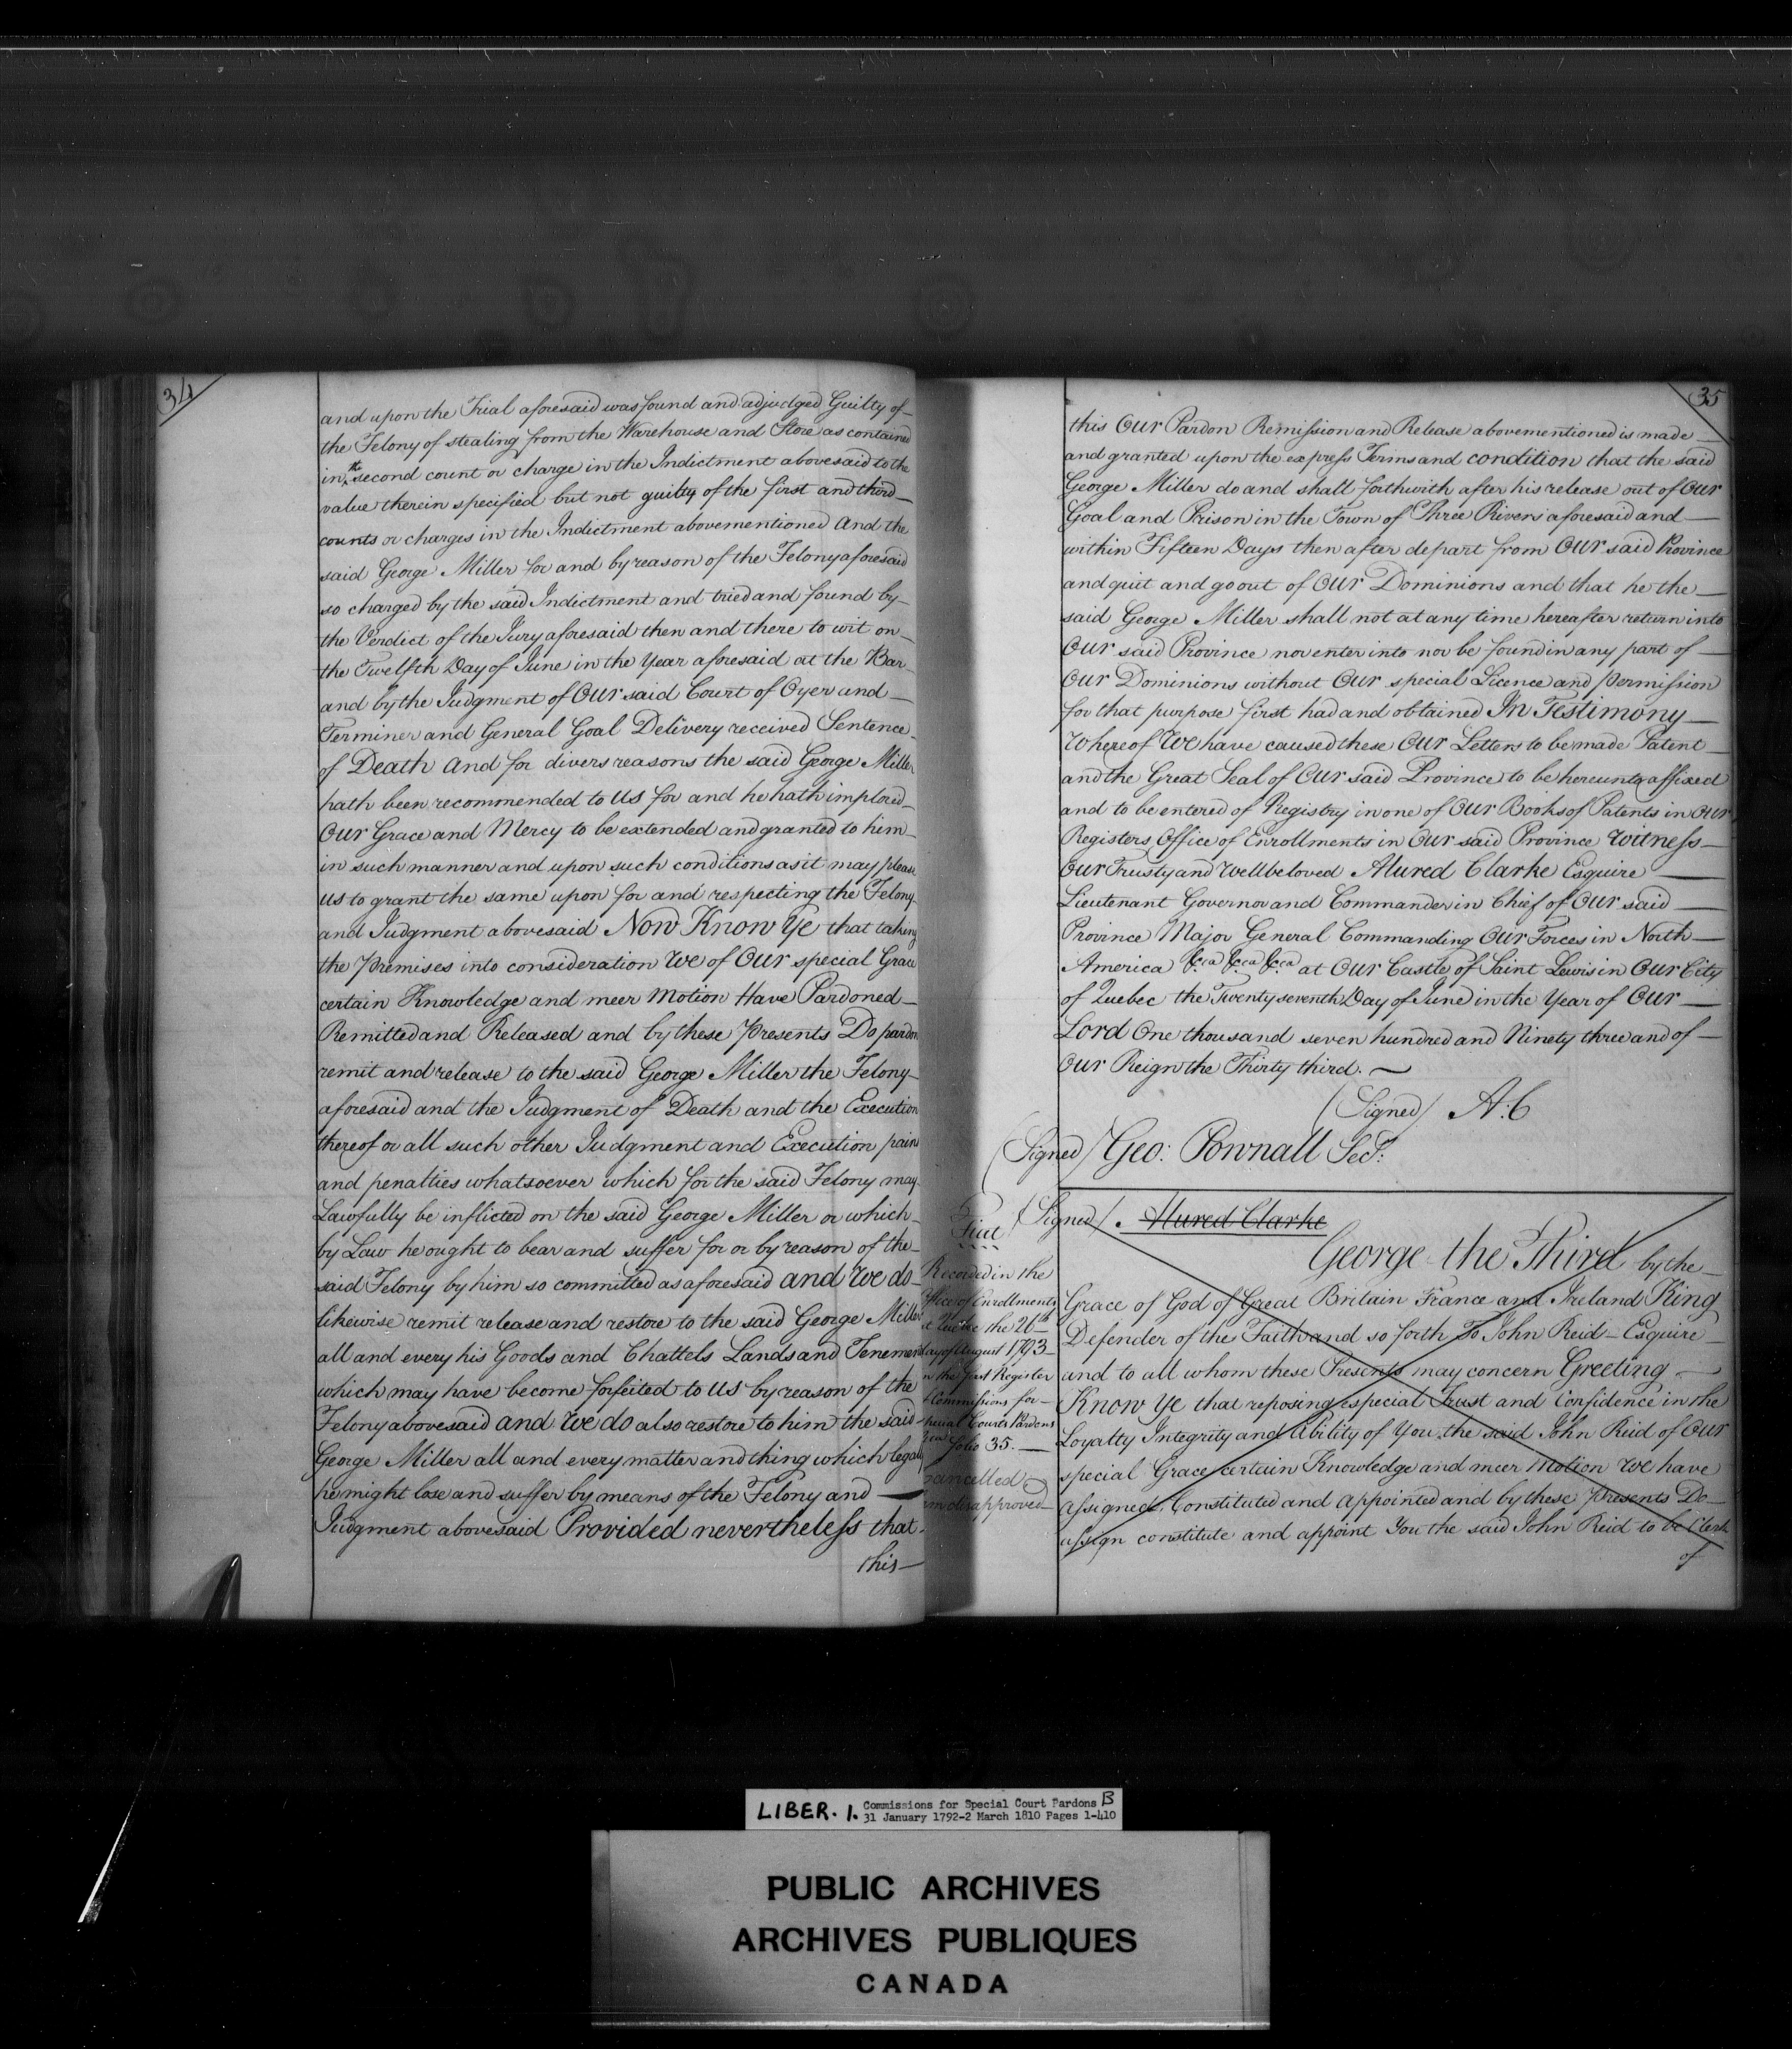 34
and upon the Trial aforesaid was found and adjudged Guilty of
the Felony of stealing from the Warehouse and Store as contained
in the second count or charge in the Indictment abovesaid to the
value therein specified but not guilty of the first and third
counts or charges in the Indictment abovementioned And the
said George Miller for and by reason of the Felony aforesaid
so charged by the said Indictment and tried and found by
the Verdict of the Jury aforesaid then and there to wit on
the Twelfth Day of June in the Year aforesaid at the Bar
and by the Judgment of Our said Court of Oyer and
Terminer and General Goal Delivery received Sentence
of Death And for divers reasons the said George Miller
hath been recommended to Us for and he hath implored
Our Grace and Mercy to be extended and granted to him
in such manner and upon such conditions as it may please
us to grant the same upon for and respecting the Felony
and Judgment abovesaid Now Know Ye that taking
the Premises into consideration We of Our special Grace
certain Knowledge and meer Motion Have Pardoned
Remitted and Released and by these Presents Do pardon
remit and release to the said George Miller the Felony
aforesaid and the Judgment of Death and the Execution
thereof or all such other Judgment and Execution pains
and penalties whatsoever which for the said Felony may
Lawfully be inflicted on the said George Miller or which
by Law he ought to bear and suffer for or by reason of the
said Felony by him so committed as aforesaid And We do
likewise remit release and restore to the said George Miller
all and every his Goods and Chattels Lands and Tenements
which may have become forfeited to Us by reason of the
Felony abovesaid And We do also restore to him the said
George Miller all and every matter and thing which legally
he might lose and suffer by means of the Felony and
Judgment abovesaid Provided nevertheless that
this
35
this Our Pardon Remission and Release abovementioned is made
and granted upon the express Terms and condition that the said
George Miller do and shall forthwith after his release out of Our
Goal and Prison in the Town of Three Rivers aforesaid and
within Fifteen Days then after depart from Our said Province
and quit and go out of Our Dominions and that he the
said George Miller shall not at any time hereafter return into
Our said Province nor enter into nor be found in any part of
Our Dominions without Our special Licence and permission
for that purpose first had and obtained In Testimony
Whereof We have caused these Our Letters to be made Patent
and the Great Seal of Our said Province to be hereunto affixed
and to be entered of Registry in one of Our Books of Patents in Our
Registers Office of Enrollments in Our said Province Witness
Our Trusty and Wellbeloved Alured Clarke Esquire
Lieutenant Governor and Commander in Chief of Our said
Province Major General Commanding Our Forces in North
America &ca &ca &ca at Our Castle of Saint Lewis in Our City
of Quebec the Twenty seventh Day of June in the Year of Our
Lord One thousand seven hundred and Ninety three and of
Our Reign the Thirty third.
(Signed) A:C
(Signed) Geo: Pownall Secy:
Fiat
Recorded in the
Office of Enrollments
at Quebec the 26th
day of August 1793
in the first Register
of Commissions for
Special Courts Pardons
&ca folio 35.
Cancelled
disapproved
(Signed) Alured Clarke
George the Third by the
Grace of God of Great Britain France and Ireland King
Defender of the Faith and so forth To John Reid Esquire
and to all whom these Presents may concern Greeting
Know Ye that reposing especial Trust and Confidence in the
Loyalty Integrity and Ability of You the said John Reid of Our
special Grace certain Knowledge and meer Motion We have
Assigned Constituted and Appointed and by these Presents Do
assign constitute and appoint You the said John Reid to be Clerk
of
LIBER. 1. Commissions for Special Court Pardons B
31 January 1792-2 March 1810 Pages 1-410
PUBLIC ARCHIVES
ARCHIVES PUBLIQUES
CANADA